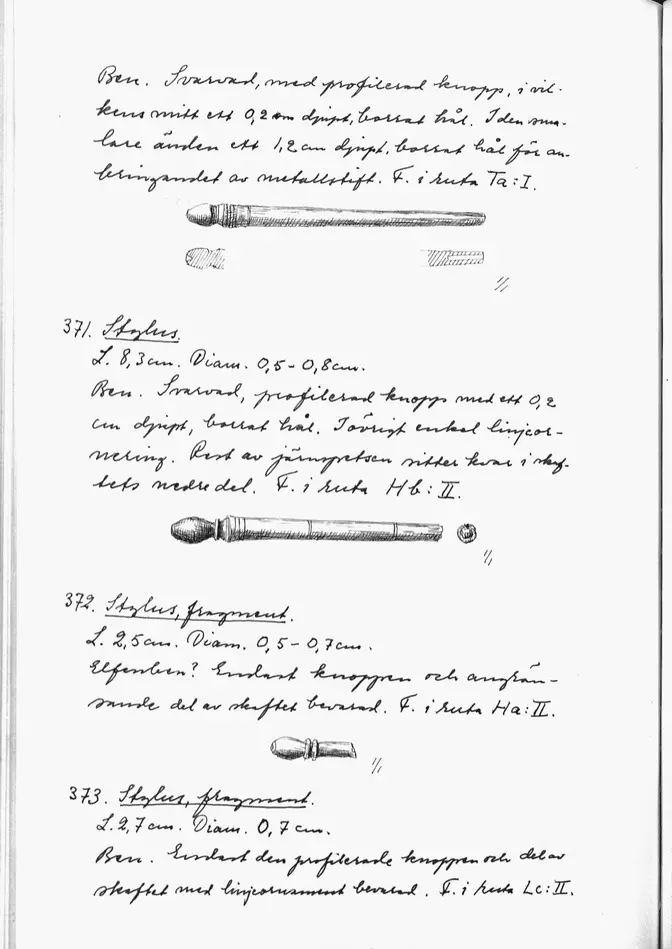 Ben. Svarvad, med profilerad knopp, i vil-
kens mitt ett 0,2 cm djupt, borrat hål. I den sma-
lare änden ett 1,2 cm djupt, borrat hål för an-
bringandet av metallstift. F. i ruta Ta:I.
1/1
371. Stylus.
L. 8,3 cm. Diam. 0,5-0,8 cm.
Ben. Svarvad, profilerad knopp med ett 0,2
cm djupt, borrat hål. I övrigt enkel linjeor-
nering. Rest av järnspetsen sitter kvar i skaf-
tets nedre del. F. i ruta Hb:II.
1/1
372. Stylus, fragment.
L. 2,5 cm. Diam. 0,5-0,7 cm.
Elfenben? Endast knoppen och angrän-
sande del av skaftet bevarad. F. i ruta Ha:II.
1/1
373. Stylus, fragment.
L. 2,7 cm. Diam. 0,7 cm.
Ben. Endast den profilerade knoppen och del av
skaftet med linjeornament bevarad. F. i ruta Lc:II.